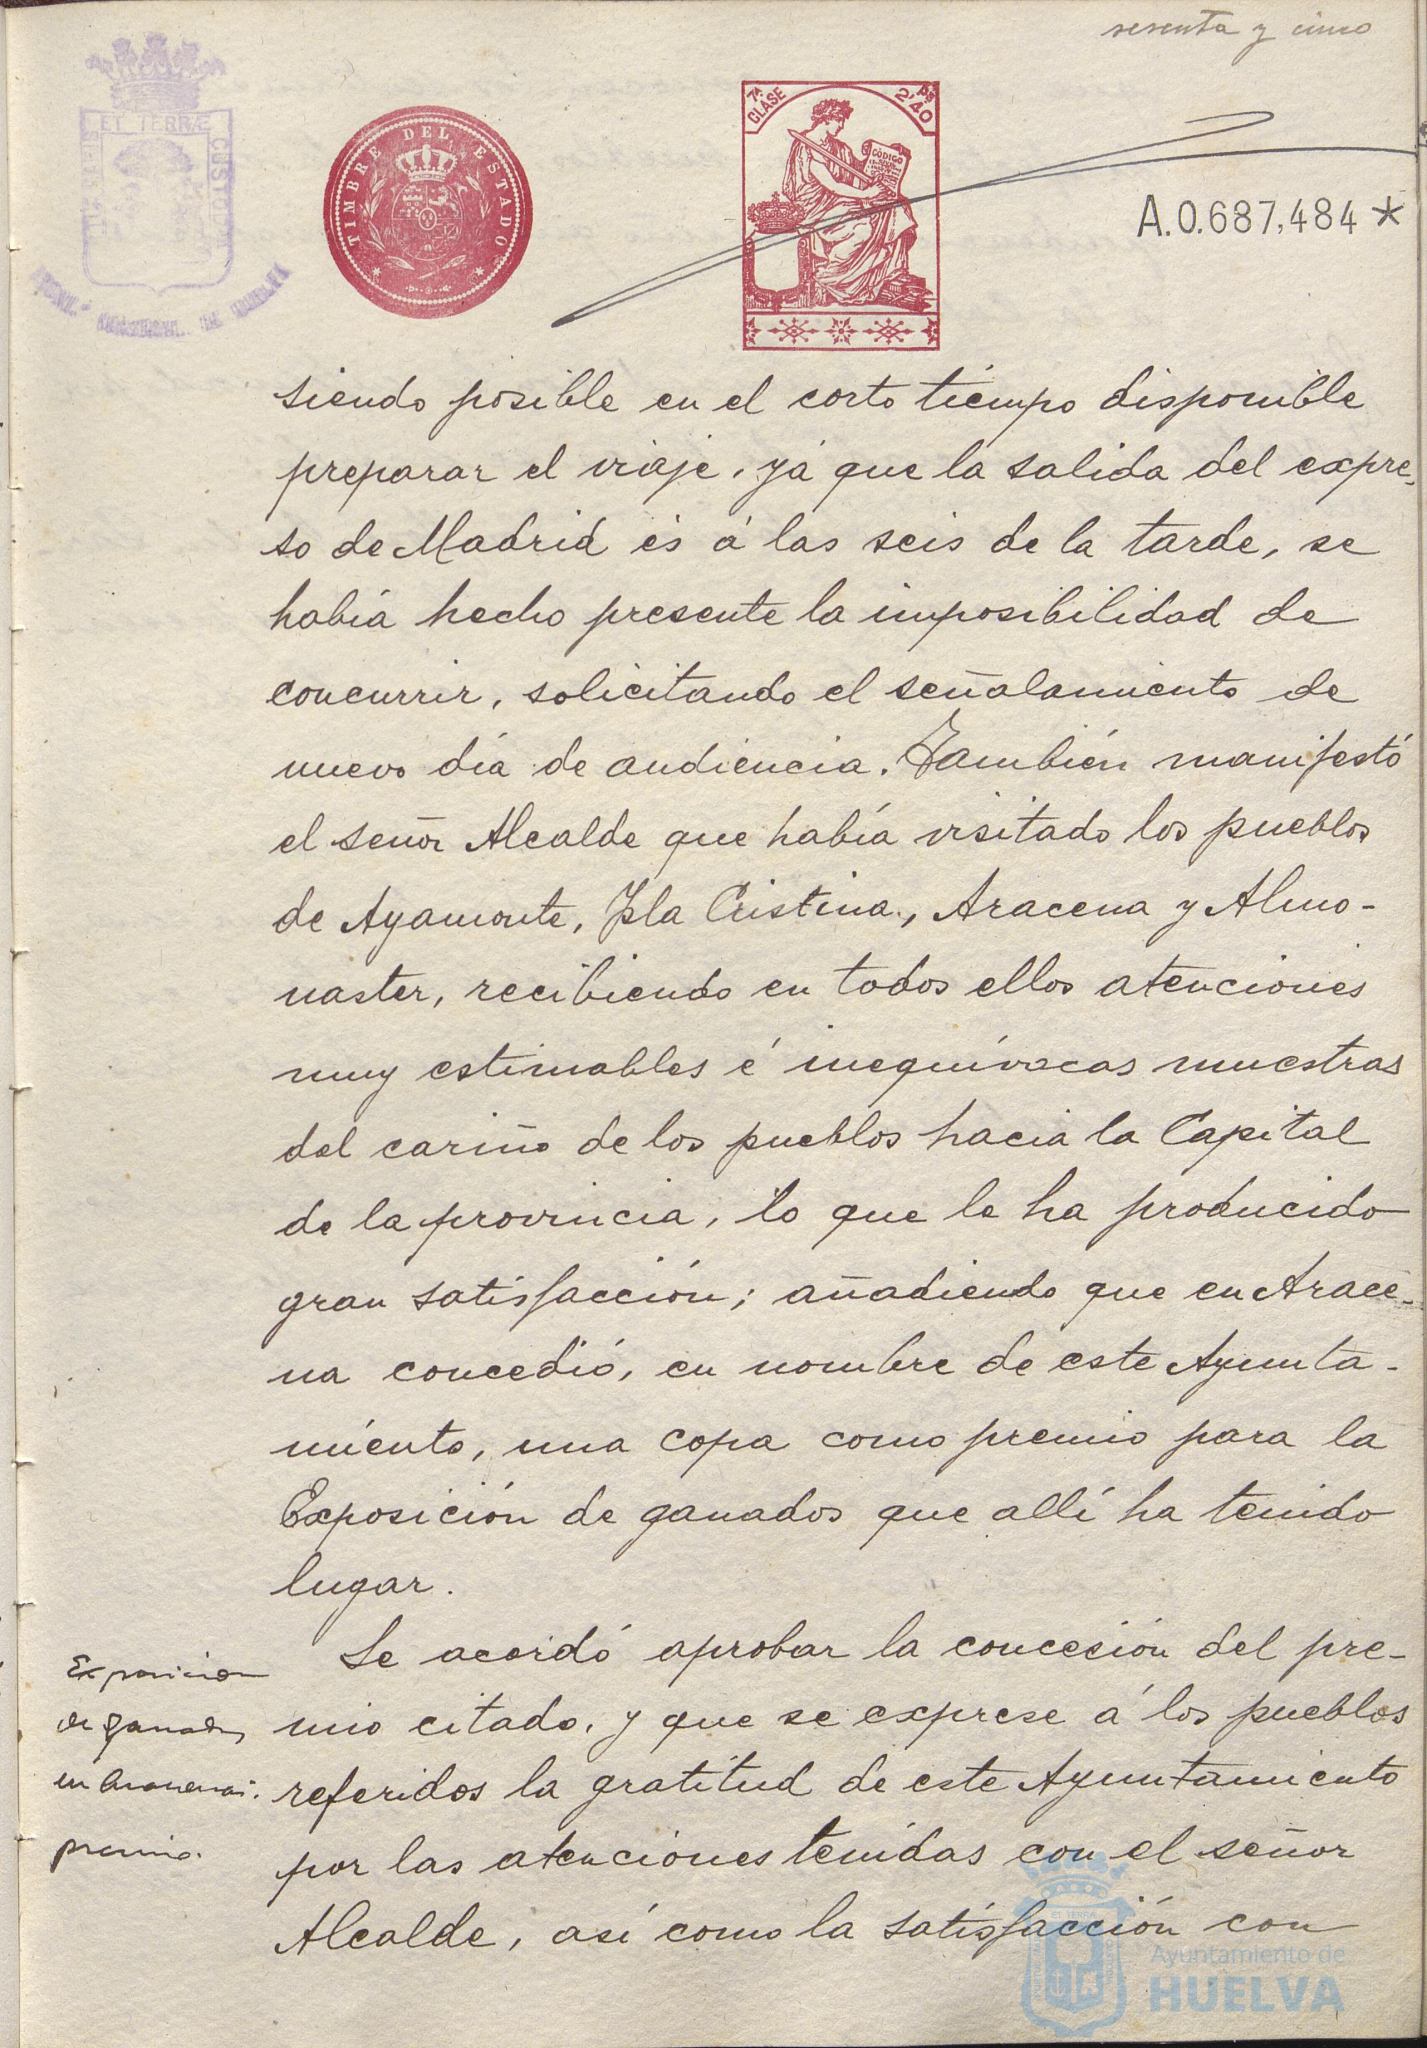 sesenta y cinco
TIMBRE DEL ESTADO
7ª CLASE
2'40 Pts
CÓDIGO
ET TERRÆ CUSTODIA
A.0.687,484 *
siendo posible en el corto tiempo disponible
preparar el viaje, yá que la salida del expre-
so de Madrid és á las seis de la tarde, se
había hecho presente la imposibilidad de
concurrir, solicitando el señalamiento de
nuevo día de audiencia. También manifestó
el señor Alcalde que había visitado los pueblos
de Ayamonte, Isla Cristina, Aracena y Almo-
naster, recibiendo en todos ellos atenciones
muy estimables é inequívocas muestras
del cariño de los pueblos hacia la Capital
de la provincia, lo que le ha producido
gran satisfacción; añadiendo que en Arace-
na concedió, en nombre de este Ayunta-
miento, una copa como premio para la
Exposición de ganados que allí ha tenido
lugar.
Se acordó aprobar la concesión del pre-
mio citado, y que se exprese á los pueblos
referidos la gratitud de este Ayuntamiento
por las atenciones tenidas con el señor
Alcalde, así como la satisfacción con
Exposicion
de ganados
en Aracena:
premio.
Ayuntamiento de
HUELVA